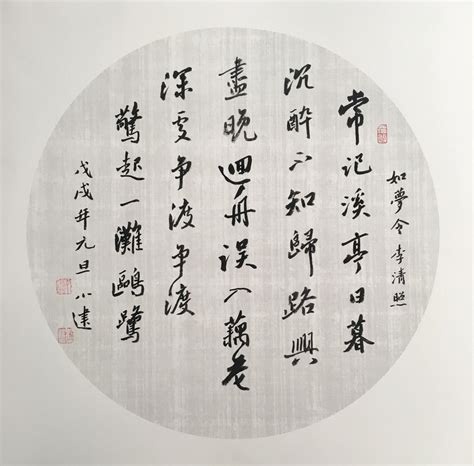 如夢令 李清照
常記溪亭日暮
沉醉不知歸路興
盡晚迴舟误入藕花
深處争渡争渡
驚起一灘鷗鷺
戊戌年元旦小建